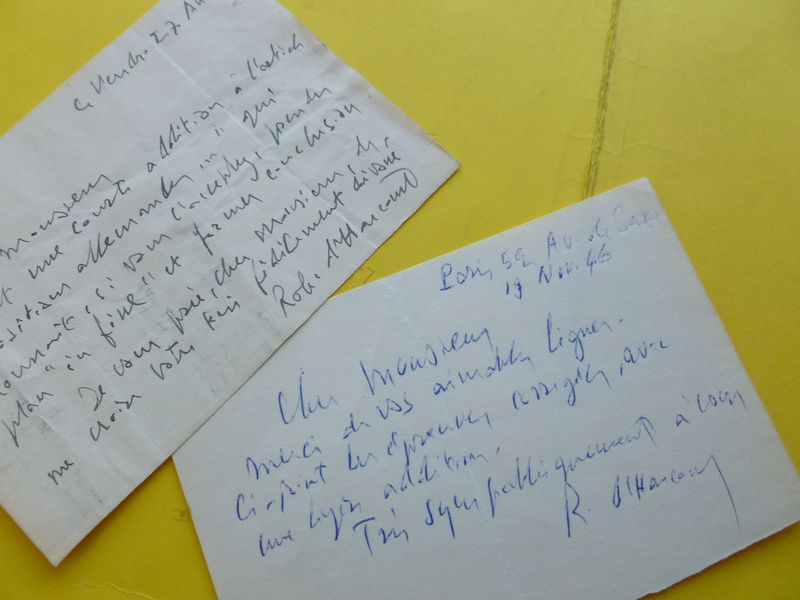 Ce Vendr. 27 Av
Monsieur
une courte addition à l'article
ositions allemandes" qui
pourrait, si vous l'acceptez, prendre
place "in fine" et former conclusion
Je vous prie, cher Monsieur, de
me croire votre bien fidèlement dévoué
Rob. d'Harcourt
Paris 52 Av. de
19 Nov. 46
Cher Monsieur
merci de vos aimables lignes.
Ci-joint les épreuves corrigées, avec
une légère addition.
Très sympathiquement à vous
R. d'Harcourt